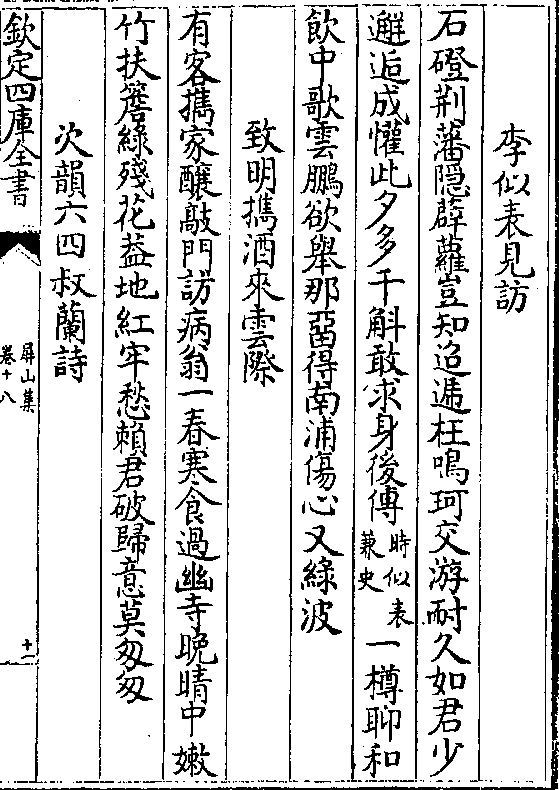 李似表見訪
石磴荆蕃隠薜蘿豈知迢遞枉鳴珂交游耐久如君少
邂逅成懽此夕多千斛敢求身後傳時似表兼史一樽聊和
飲中歌雲鵬欲舉那留得南浦傷心又綠波
致明攜酒來雲際
有客攜家釀敲門訪病翁一春寒食過幽寺晩晴中嫩
竹扶簷綠殘花葢地紅牢愁賴君破歸意莫匆匆
次韻六四叔蘭詩
欽定四庫全書
屏山集
卷十八
十一